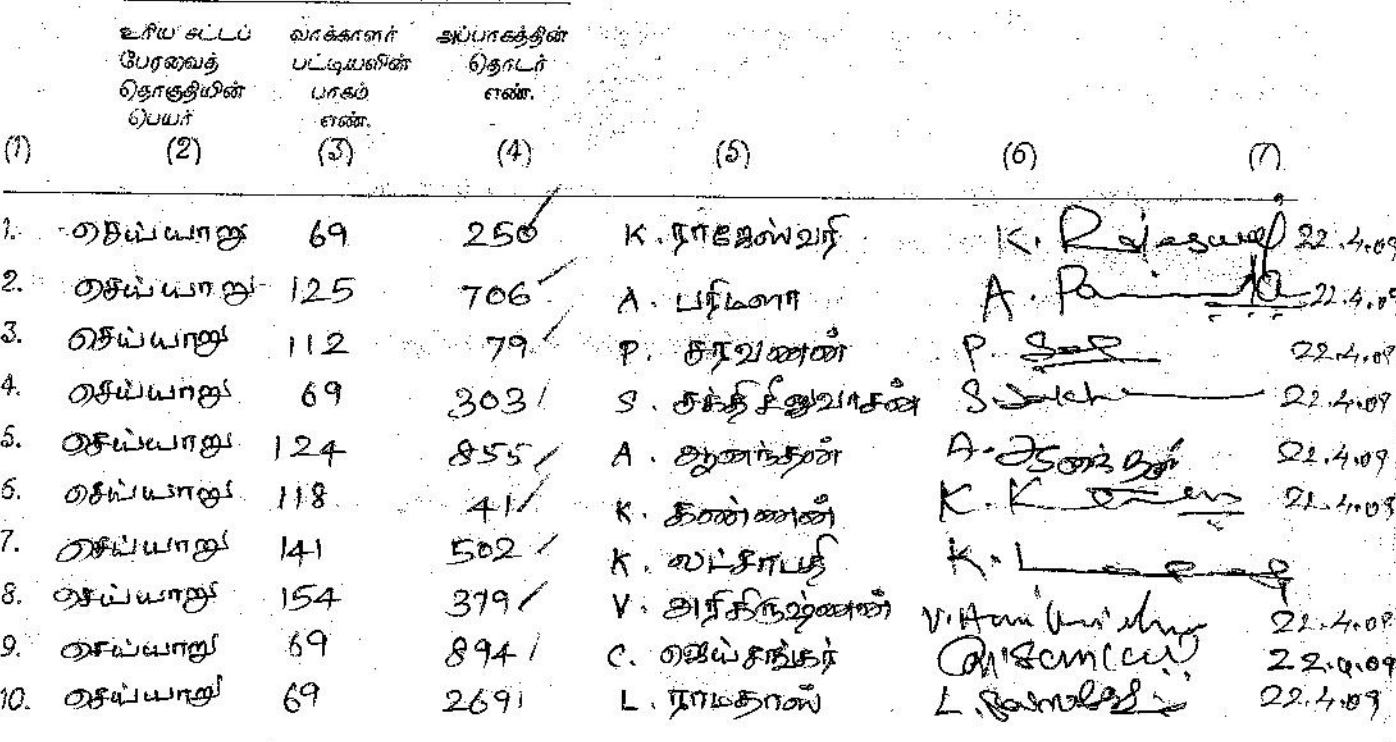 உரிய சட்டப் வாக்காளர் அப்பாகத்தின்
பேரவைத் பட்டியலின் தொடர்
தொகுதியின் பாகம் எண்.
பெயர் எண்.
(1) (2) (3) (4) (5) (6) (7)
1. செய்யாறு 69 250 K. ராஜேஸ்வரி K. Rajeswari 22.4.09
2. செய்யாறு 125 706 A. பரிமளா A. 22.4.09
3. செய்யாறு 112 79 P. சரவணன் P. 22.4.09
4. செய்யாறு 69 303 S. சக்திசீனுவாசன் 22.4.09
5. செய்யாறு 124 855 A. ஆனந்தன் A. ஆனந்தன் 22.4.09
6. செய்யாறு 118 41 K. கண்ணன் K. 22.4.09
7. செய்யாறு 141 502 K. லட்சாபதி K.
8. செய்யாறு 154 379 V. அரிகிருஷ்ணன் V. Harikrishna 22.4.09
9. செய்யாறு 69 894 C. ஜெய்சங்கர் 22.4.09
10. செய்யாறு 69 269 L. ராமதாஸ் L. 22.4.09